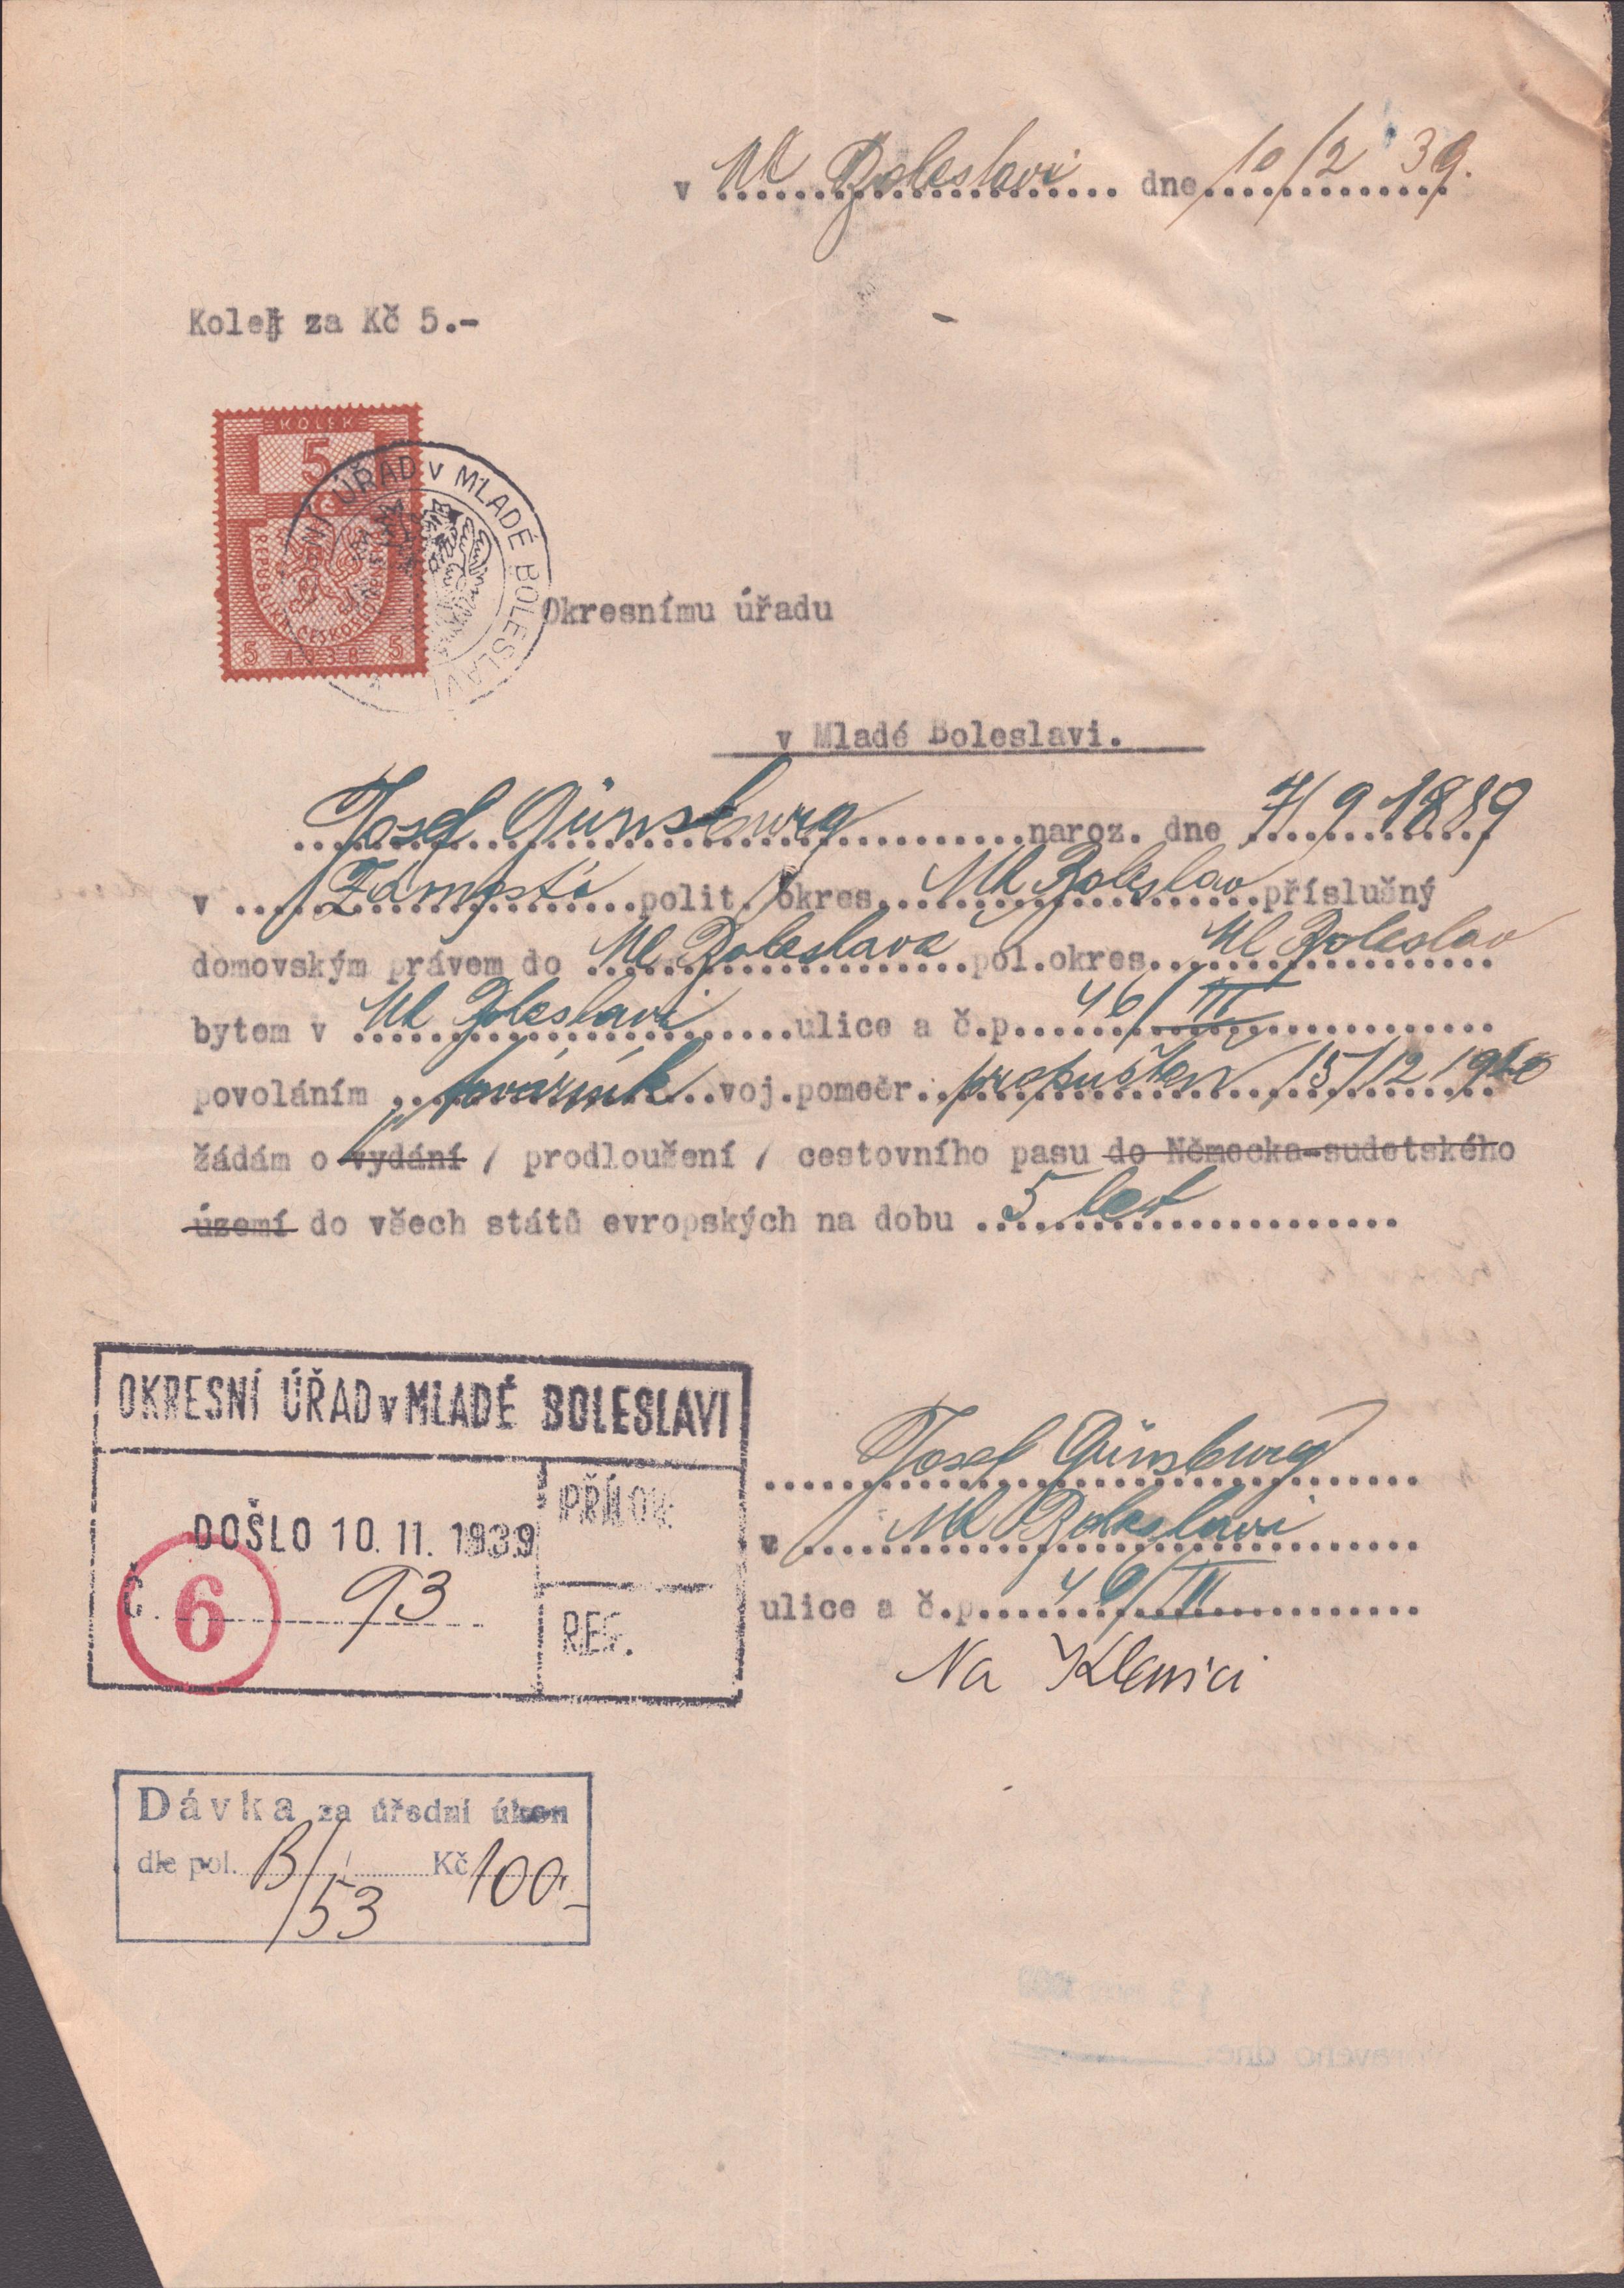 v Ml Boleslavi dne 10/2 39.
Kolek za Kč 5.-
KOLEK
5
Kč
REPUBLIKA ČESKOSLOVENSKÁ
5 1938 5
OKRESNÍ ÚŘAD v MLADÉ BOLESLAVI
Okresnímu úřadu
v Mladé Boleslavi.
Josef Günsburg naroz. dne 7/9 1889
v Zámostí polit. okres Ml Boleslav příslušný
domovským právem do Ml Boleslava pol.okres Ml Boleslav
bytem v Ml Boleslavi ulice a č.p. 46/III
povoláním továrník voj.pomeěr propuštěn 15/12 1940
žádám o vydání / prodloužení / cestovního pasu do Německa-sudetského
území do všech států evropských na dobu 5 let
OKRESNÍ ÚŘAD v MLADÉ BOLESLAVI
DOŠLO 10. II. 1939
PŘÍLOH:
Č. 93
6
REF.
Josef Günsburg
v Ml Boleslavi
ulice a č.p. 46/III
Na Klenici
Dávka za úřední úkon
dle pol. B/53 Kč 100.-